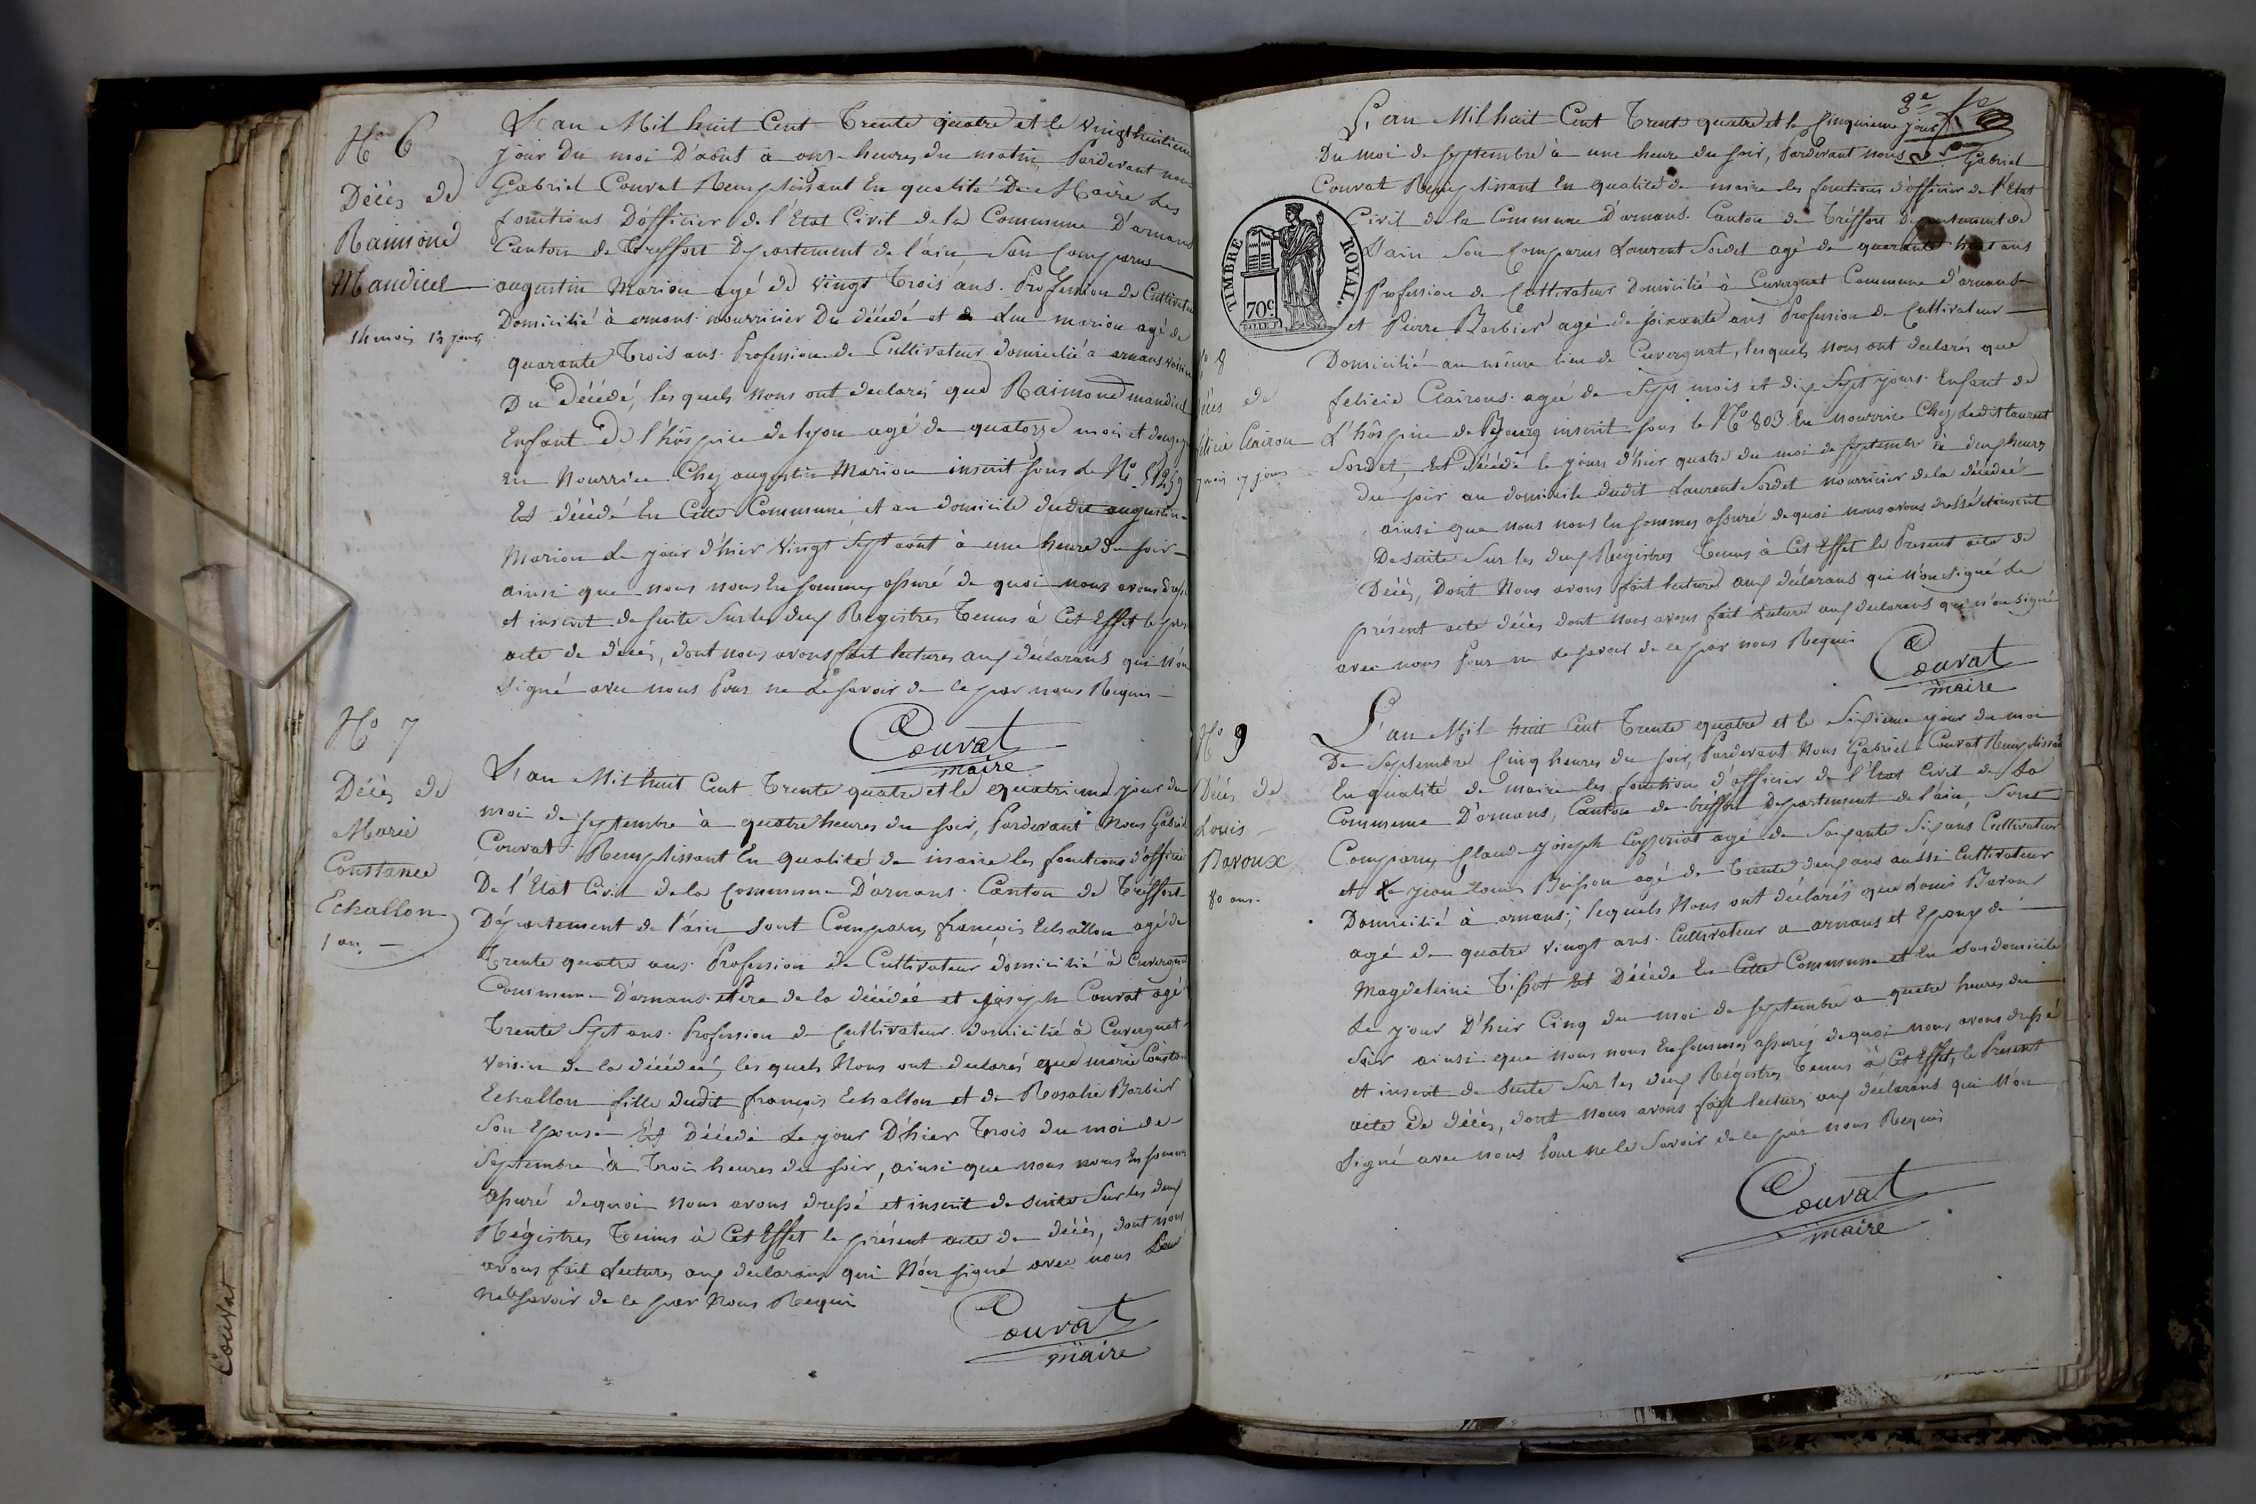 No 6
Décès de
Raimond
Mandrel
14 mois 12 jours
L'an Mil huit Cent Trente quatre et le vingt huitieme
jour du moi D'août à onze heures du matin, Pardevant nous
Gabriel Couvat Remplissant En qualité De Maire Les
fonctions D'officier de l'Etat Civil de la Commune D'arnans
Canton de Treffort Département de l'ain Son Comparus
augustin Marion agé de vingt Trois ans. Profession de Cultivateur
Domicilié à arnans nourricier Du décédé et de Luc marion agé de
quarante Trois ans Profession de Cultivateur domicilié a arnans voisin
Du Décédé, les quels nous ont declarés que Raimond
Enfant De l'hospice de lyon agé de quatorze mois et douze jours
En Nourrice Chez augustin Marion inscrit sous le No
Est décédé En Cette Commune et au domicile dudit augustin
Marion Le jour d'hier vingt Sept août à une heure du soir
ainsi que nous nous En sommes assuré de quoi nous avons dressé
et inscrit de suite Sur les deux Registres Tenus à Cet Effet le pres
acte de décès, dont nous avons fait lectures aux déclarans qui n'on
Signé avec nous Pour ne Le savoir de ce par nous Requis
Couvat
maire
No 7
Décès de
Marie
Constance
Echallon
1 an
L'an Mil huit Cent Trente quatre et le quatrieme jour du
moi de septembre à quatre heures du soir, Pardevant Nous Gabriel
Couvat Remplissant En qualité de maire les fonctions d'officier
De l'Etat Civil de la Commune D'arnans Canton de Treffort
Département de l'ain Sont Comparus françois Echallon agé de
Trente quatre ans Profession de Cultivateur domicilié à Cuvergnat
Commune D'arnans Père de la décédée et joseph Couvat agé
Trente Sept ans. Profession de Cultivateur domicilié à Cuvergnat
Voisin de la décédée, les quels Nous ont declarés que marie Constan
Echallon fille dudit françois Echallon et de Rosalie Barbier
Son Epouse Est Décédé Le jour D'hier Trois du moi de
Septembre à Trois heures du soir, ainsi que nous nous En sommes
assuré de quoi nous avons dressé et inscrit de suite Sur les deux
Régistres Tenus à Cet Effet le présent acte de décès, dont nous
avons fait Lectures aux declarans qui N'on signé avec nous Pour
ne le savoir de ce par Nous Requis
Couvat
maire
TIMBRE ROYAL.
70c.
No 8
Décès de
félicie Clairon
7 mois 17 jours
L'an Mil huit Cent Trente quatre et le Cinquieme jour
Du moi de septembre à une heure du soir, Pardevant nous Gabriel
Couvat Remplissant En qualité de maire les fonctions d'officier de l'Etat
Civil de la Commune D'arnans Canton de Tréffort Département de
L'ain Son Comparus Laurent Sordet agé de quarante huit ans
Profession de Cultivateur Domicilié à Cuvergnat Commune d'arnans
et Pierre Barbier agé de soixante ans Profession de Cultivateur
Domicilié au même lieu de Cuvergnat, lesquels nous ont declarés que
félicie Clairons agée de Sept mois et dix Sept jours Enfant de
L'hospice de Bourg inscrit sous le No 803 En nourrice Chez Ledit Laurent
Sordet, Est Décédé le jour d'hier quatre du moi de septembre à deux heures
du soir au domicile dudit Laurent Sordet nourricier de la décédée
ainsi que nous nous En sommes assuré de quoi nous avons dressé et inscrit
De suite Sur les deux Registres Tenus à Cet Effet le Présent acte de
Décès, Dont Nous avons fait lectures aux déclarans qui n'on signé le
présent acte décès dont nous avons fait Lectures aux declarans qui n'on signé
avec nous Pour ne Le savoir de ce par nous Requis
Couvat
maire
No 9
Décès de
Louis
Bavoux
80 ans.
L'an Mil huit Cent Trente quatre et le Sixieme jour du moi
De Septembre Cinq heures du soir, Pardevant Nous Gabriel Couvat Remplissan
En qualité de maire les fonction d'officier de l'Etat Civil de La
Commune D'arnans, Canton de tréffort Département de l'ain, Sont
Comparus Claude joseph agé de Soixante Six ans Cultivateur
et jean louis Buisson agé de Trente deux ans aussi Cultivateur
Domicilié à arnans, lequels Nous ont déclarés que Louis Bavoux
agé de quatre vingt ans. Cultivateur a arnans et Epoux de
Magdeleine Tissot Est Décédé En Cette Commune et En Son domicile
Le jour D'hier Cinq du moi de septembre a quatre heures du
Soir ainsi que nous nous En sommes assurés de quoi nous avons dressé
et inscrit de suite Sur les deux Régistres Tenus à Cet Effet, le Présent
acte de décès, dont nous avons fait lectures aux déclarans qui N'on
Signé avec nous Pour ne le Savoir de ce par nous Requis
Couvat
maire
Couvat